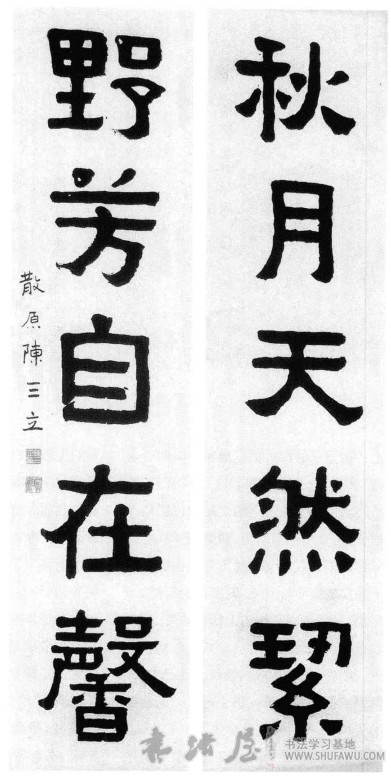 秋月天然絜
野芳自在馨
散原陳三立
書法屋
书法学习基地
WWW.SHUFAWU.COM